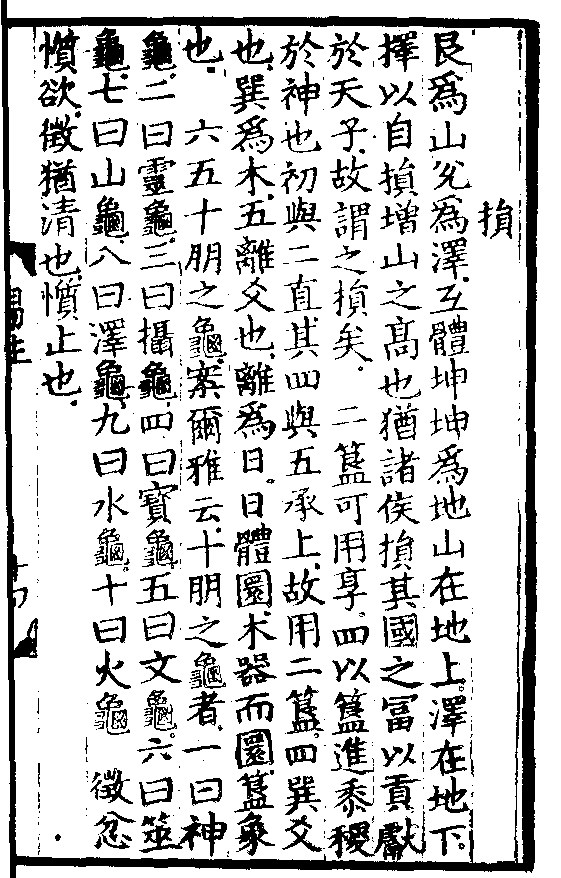 損
艮爲山兊爲澤互體坤坤爲地山在地上。澤在地下。
擇以自損增山之髙也猶諸侯損其國之冨以貢獻
於天子。故謂之損矣。　二簋可用享。四以簋進黍稷
於神也初與二直其四與五承上故用二簋。四巽爻
也。巽爲木。五離爻也。離爲日。日體圜。木器而圜。簋象
也。　六五十朋之龜。案爾雅云。十朋之龜者。一曰神
龜。二曰靈龜。三曰攝龜。四曰寳龜。五曰文龜。六曰筮
龜。七曰山龜。八曰澤龜。九曰水龜。十曰火龜　徵忿
懫欲。徵猶清也。懫止也。